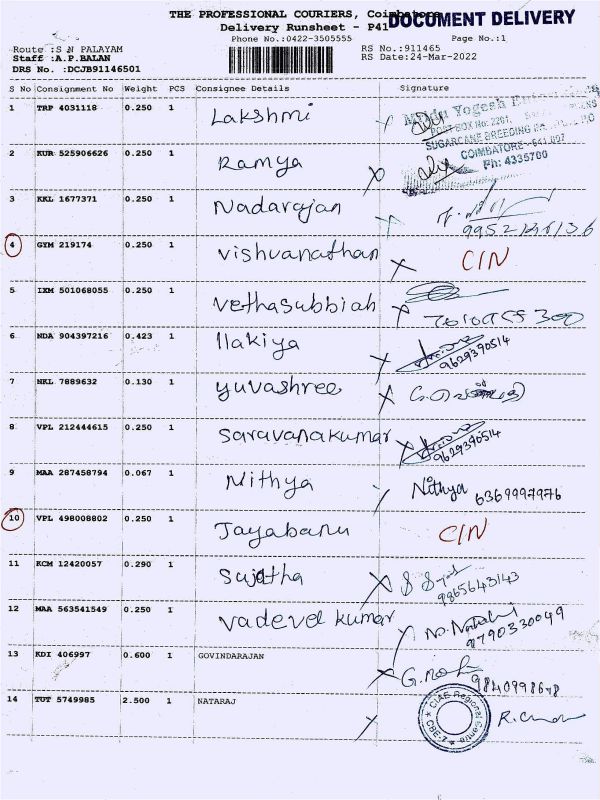 THE PROFESSIONAL COURIERS, Coimbatore
DOCUMENT DELIVERY
Delivery Runsheet - P41
Phone No.:0422-3505555
Page No.:1
Route :S N PALAYAM
RS No.:911465
Staff :A.P.BALAN
RS Date:24-Mar-2022
DRS No. :DCJB91146501
S No Consignment No Weight PCS Consignee Details Signature
1 TRP 4031118 0.250 1 Lakshmi
POST BOX No: 2261,
SUGARCANE BREEDING
COIMBATORE - 641 007
Ph: 4335700
2 KUR 525906626 0.250 1 Ramya
3 KKL 1677371 0.250 1 Nadarajan
4 GYM 219174 0.250 1 Vishvanathan CIN
5 IXM 501068055 0.250 1 Vethasubbiah
6 NDA 904397216 0.423 1 Ilakiya 9629390514
7 NKL 7889632 0.130 1 yuvashree
8 VPL 212444615 0.250 1 Saravanakumar 9629390514
9 MAA 287458794 0.067 1 Nithya Nithya 6369997976
10 VPL 498008802 0.250 1 Jayabanu CIN
11 KCM 12420057 0.290 1 Sujatha 9865643143
12 MAA 563541549 0.250 1 Vadevel kumar 9790330049
13 KDI 406997 0.600 1 GOVINDARAJAN
14 TUT 5749985 2.500 1 NATARAJ
CIAE Regional Centre
CBE-7